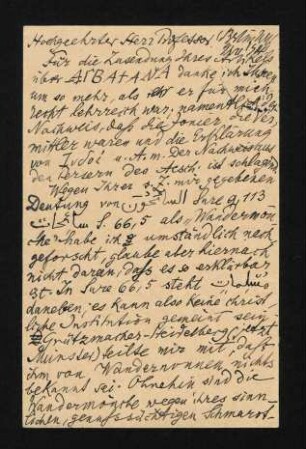 Hochgeehrter Herr Professor
Für die Zusendung Ihres Artikels
über ΑΓΒΑΤΑΝΑ danke ich Ihnen
um so mehr, als er für mich
recht lehrreich war, namentlich
Nachweis, daß die Ionier, die Ver-
mittler waren und die Erklärung
von u. A. m. Der Nachweis aus
den Persern des Aesch. ist schlagend
Wegen Ihrer mir gegebenen
Deutung von السائحون Sure 9, 113
سائحات S. 66,5 als „Wandermön-
che" habe ich umständlich nach-
geforscht, glaube aber hiernach
nicht daran, daß es so erklärbar
ist. In Sure 66,5 steht
daneben; es kann also keine christ-
liche Institution gemeint sein.
Grützmacher-Heidelberg (jetzt
Münster) teilte mir mit, daß
ihm von Wandernonnen nichts
bekannt sei. Ohnehin sind die
Wandermönche wegen ihres sinn-
lichen, genußsüchtigen Schmarot-